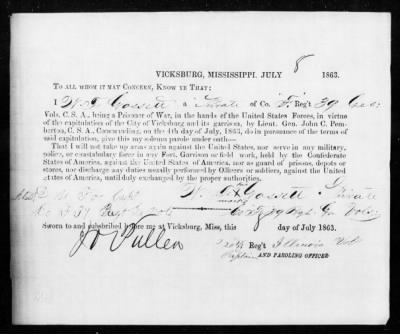 VICKSBURG, MISSISSIPPI, JULY 8 1863.
TO ALL WHOM IT MAY CONCERN, KNOW YE THAT:
I W. T. Gossett a Private of Co. F. Reg't 39 Geo:
Vols. C. S. A., being a Prisoner of War, in the hands of the United States Forces, in virtue
of the capitulation of the City of Vicksburg and its garrison, by Lieut. Gen. John C. Pem-
berton, C. S. A., Commanding, on the 4th day of July, 1863, do in pursuance of the terms of
said capitulation, give this my solemn parole under oath—
That I will not take up arms again against the United States, nor serve in any military,
police, or constabulary force in any Fort, Garrison or field work, held by the Confederate
States of America, against the United States of America, nor as guard of prisons, depots or
stores, nor discharge any duties usually performed by Officers or soldiers, against the United
States of America, until duly exchanged by the proper authorities.
W. T. his X mark Gossett Private
Co F 39 Regt Ga Vols
Sworn to and subscribed before me at Vicksburg, Miss., this day of July 1863.
J D Pullen
20th Reg't Illinois Vols
Captain AND PAROLING OFFICER